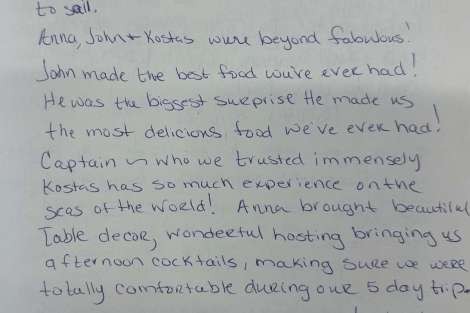 to sail.
Anna, John + Kostas were beyond fabulous!
John made the best food we've ever had!
He was the biggest surprise He made us
the most delicious food we've ever had!
Captain ~ who we trusted immensely
Kostas has so much experience on the
seas of the world! Anna brought beautiful
Table decor, wonderful hosting bringing us
afternoon cocktails, making sure we were
totally comfortable during our 5 day trip.